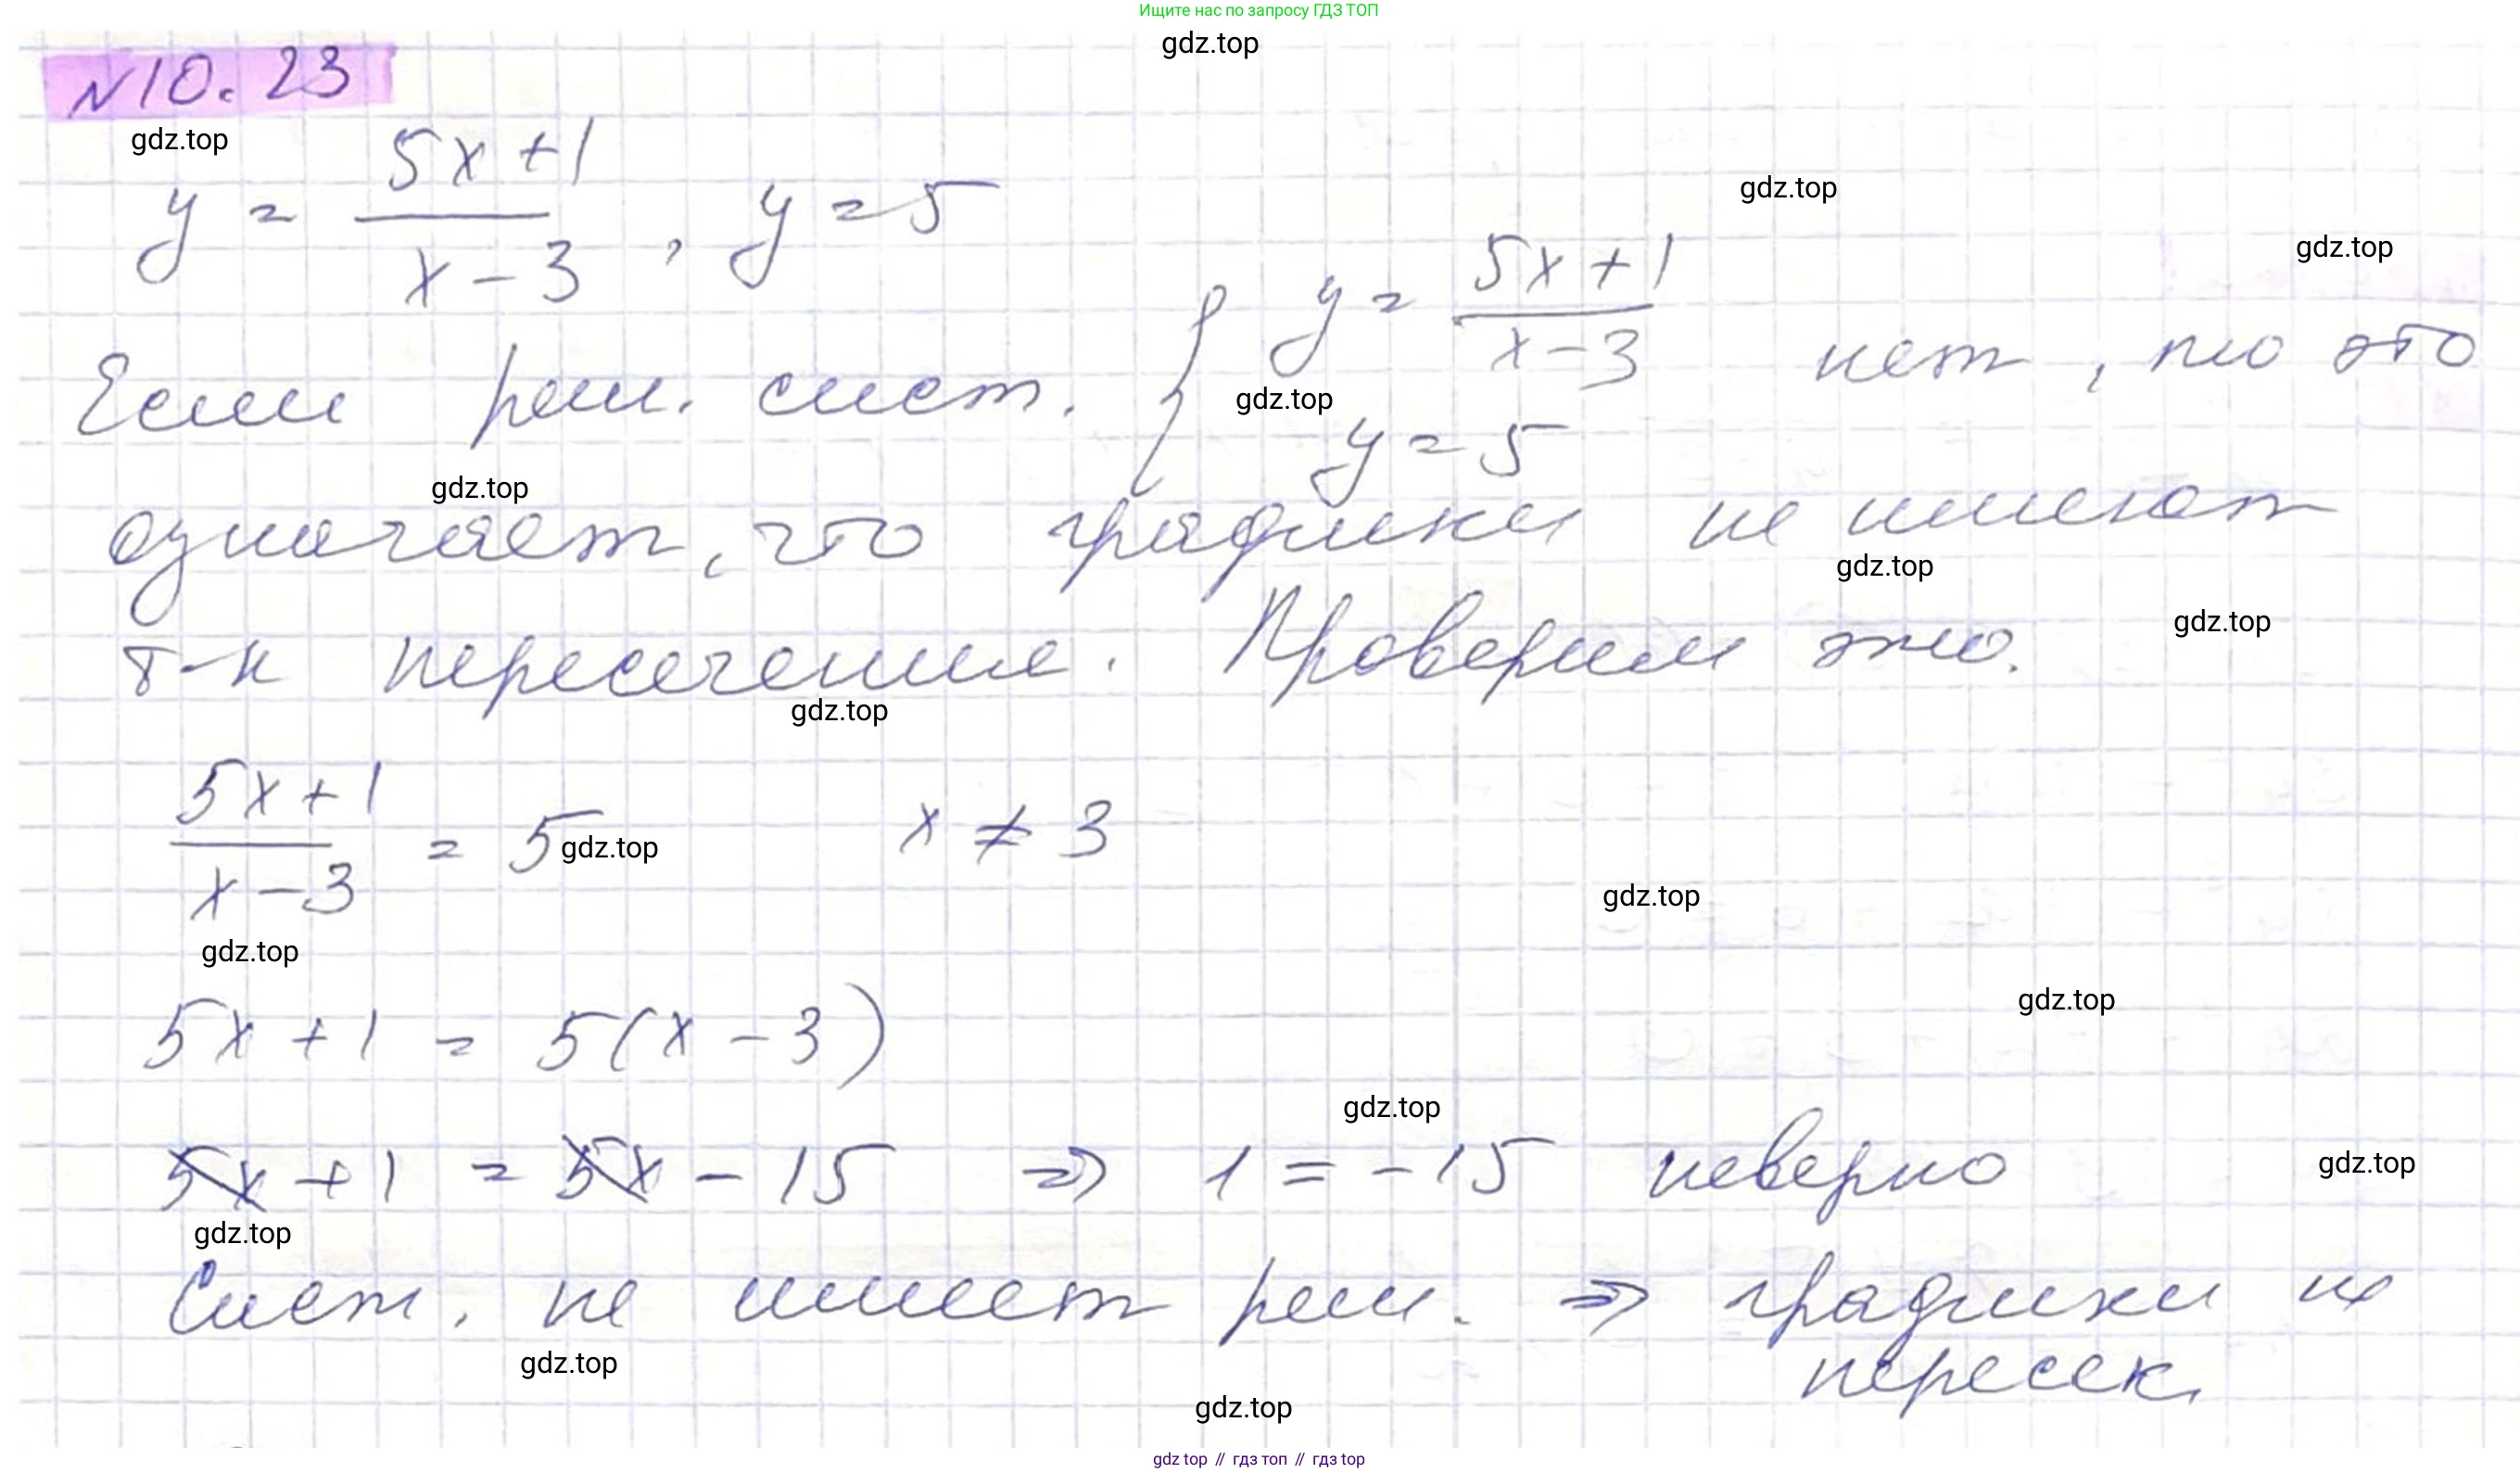 Ищите нас по запросу ГДЗ ТОП
gdz.top
№10.23
gdz.top
y = (5x+1)/(x-3), y = 5
gdz.top
gdz.top
Если реш. сист. { y = (5x+1)/(x-3) нет, то это
gdz.top
y = 5
gdz.top
означает, что графики не имеют
gdz.top
т-к пересечение. Проверим это.
gdz.top
gdz.top
(5x+1)/(x-3) = 5 x ≠ 3
gdz.top
gdz.top
gdz.top
gdz.top
5x+1 = 5(x-3)
gdz.top
5x+1 = 5x-15 ⇒ 1 = -15 неверно
gdz.top
gdz.top
Сист. не имеет реш. ⇒ графики не
пересек.
gdz.top
gdz.top
gdz top // гдз топ // гдз top